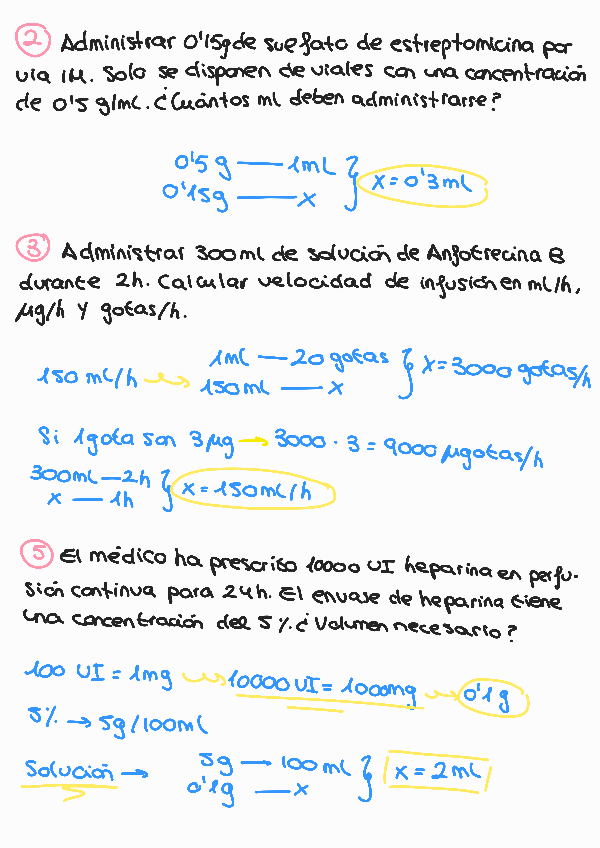 2 Administrar 0'15g de sulfato de estreptomicina por
vía IM. Solo se disponen de viales con una concentración
de 0'5 g/mL. ¿Cuántos ml deben administrarse?
0'5 g — 1mL
0'15g — x
x = 0'3 mL
3 Administrar 300ml de solución de Anfotrecina B
durante 2h. Calcular velocidad de infusión en mL/h,
µg/h y gotas/h.
150 mL/h → 1mL — 20 gotas
150 mL — x
x = 3000 gotas/h
Si 1gota son 3 µg → 3000 · 3 = 9000 µgotas/h
300mL — 2h
x — 1h
x = 150mL/h
5 El médico ha prescrito 10000 UI heparina en perfu-
sión continua para 24h. El envase de heparina tiene
una concentración del 5%. ¿Volumen necesario?
100 UI = 1mg → 10000 UI = 1000mg → 0'1 g
5% → 5g/100mL
Solución → 5g — 100 mL
0'1g — x
x = 2 mL